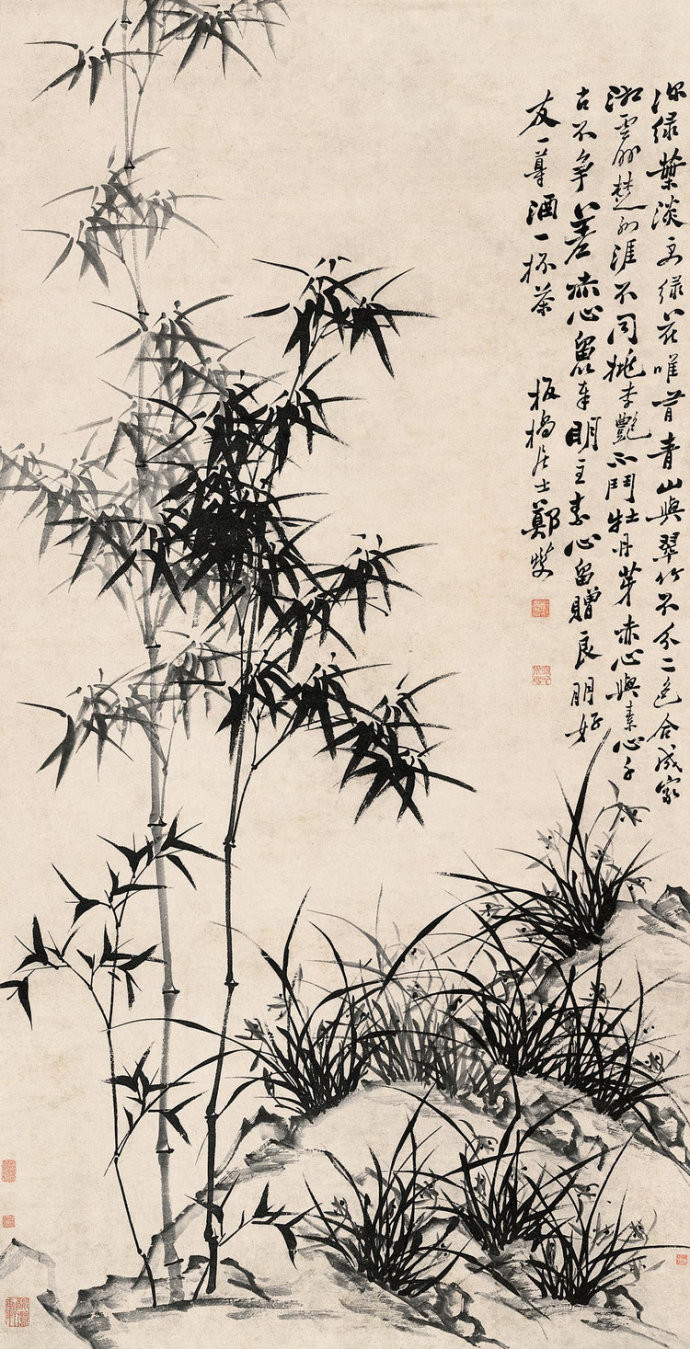 深緑葉淡緑花唯青山與翠竹不分二色合成家
湘雲外楚江涯不同桃李艷不鬥牡丹芽赤心與素心千
古不争差赤心留奉明主素心留贈良朋好
友一尊酒一杯茶 板橋居士鄭燮